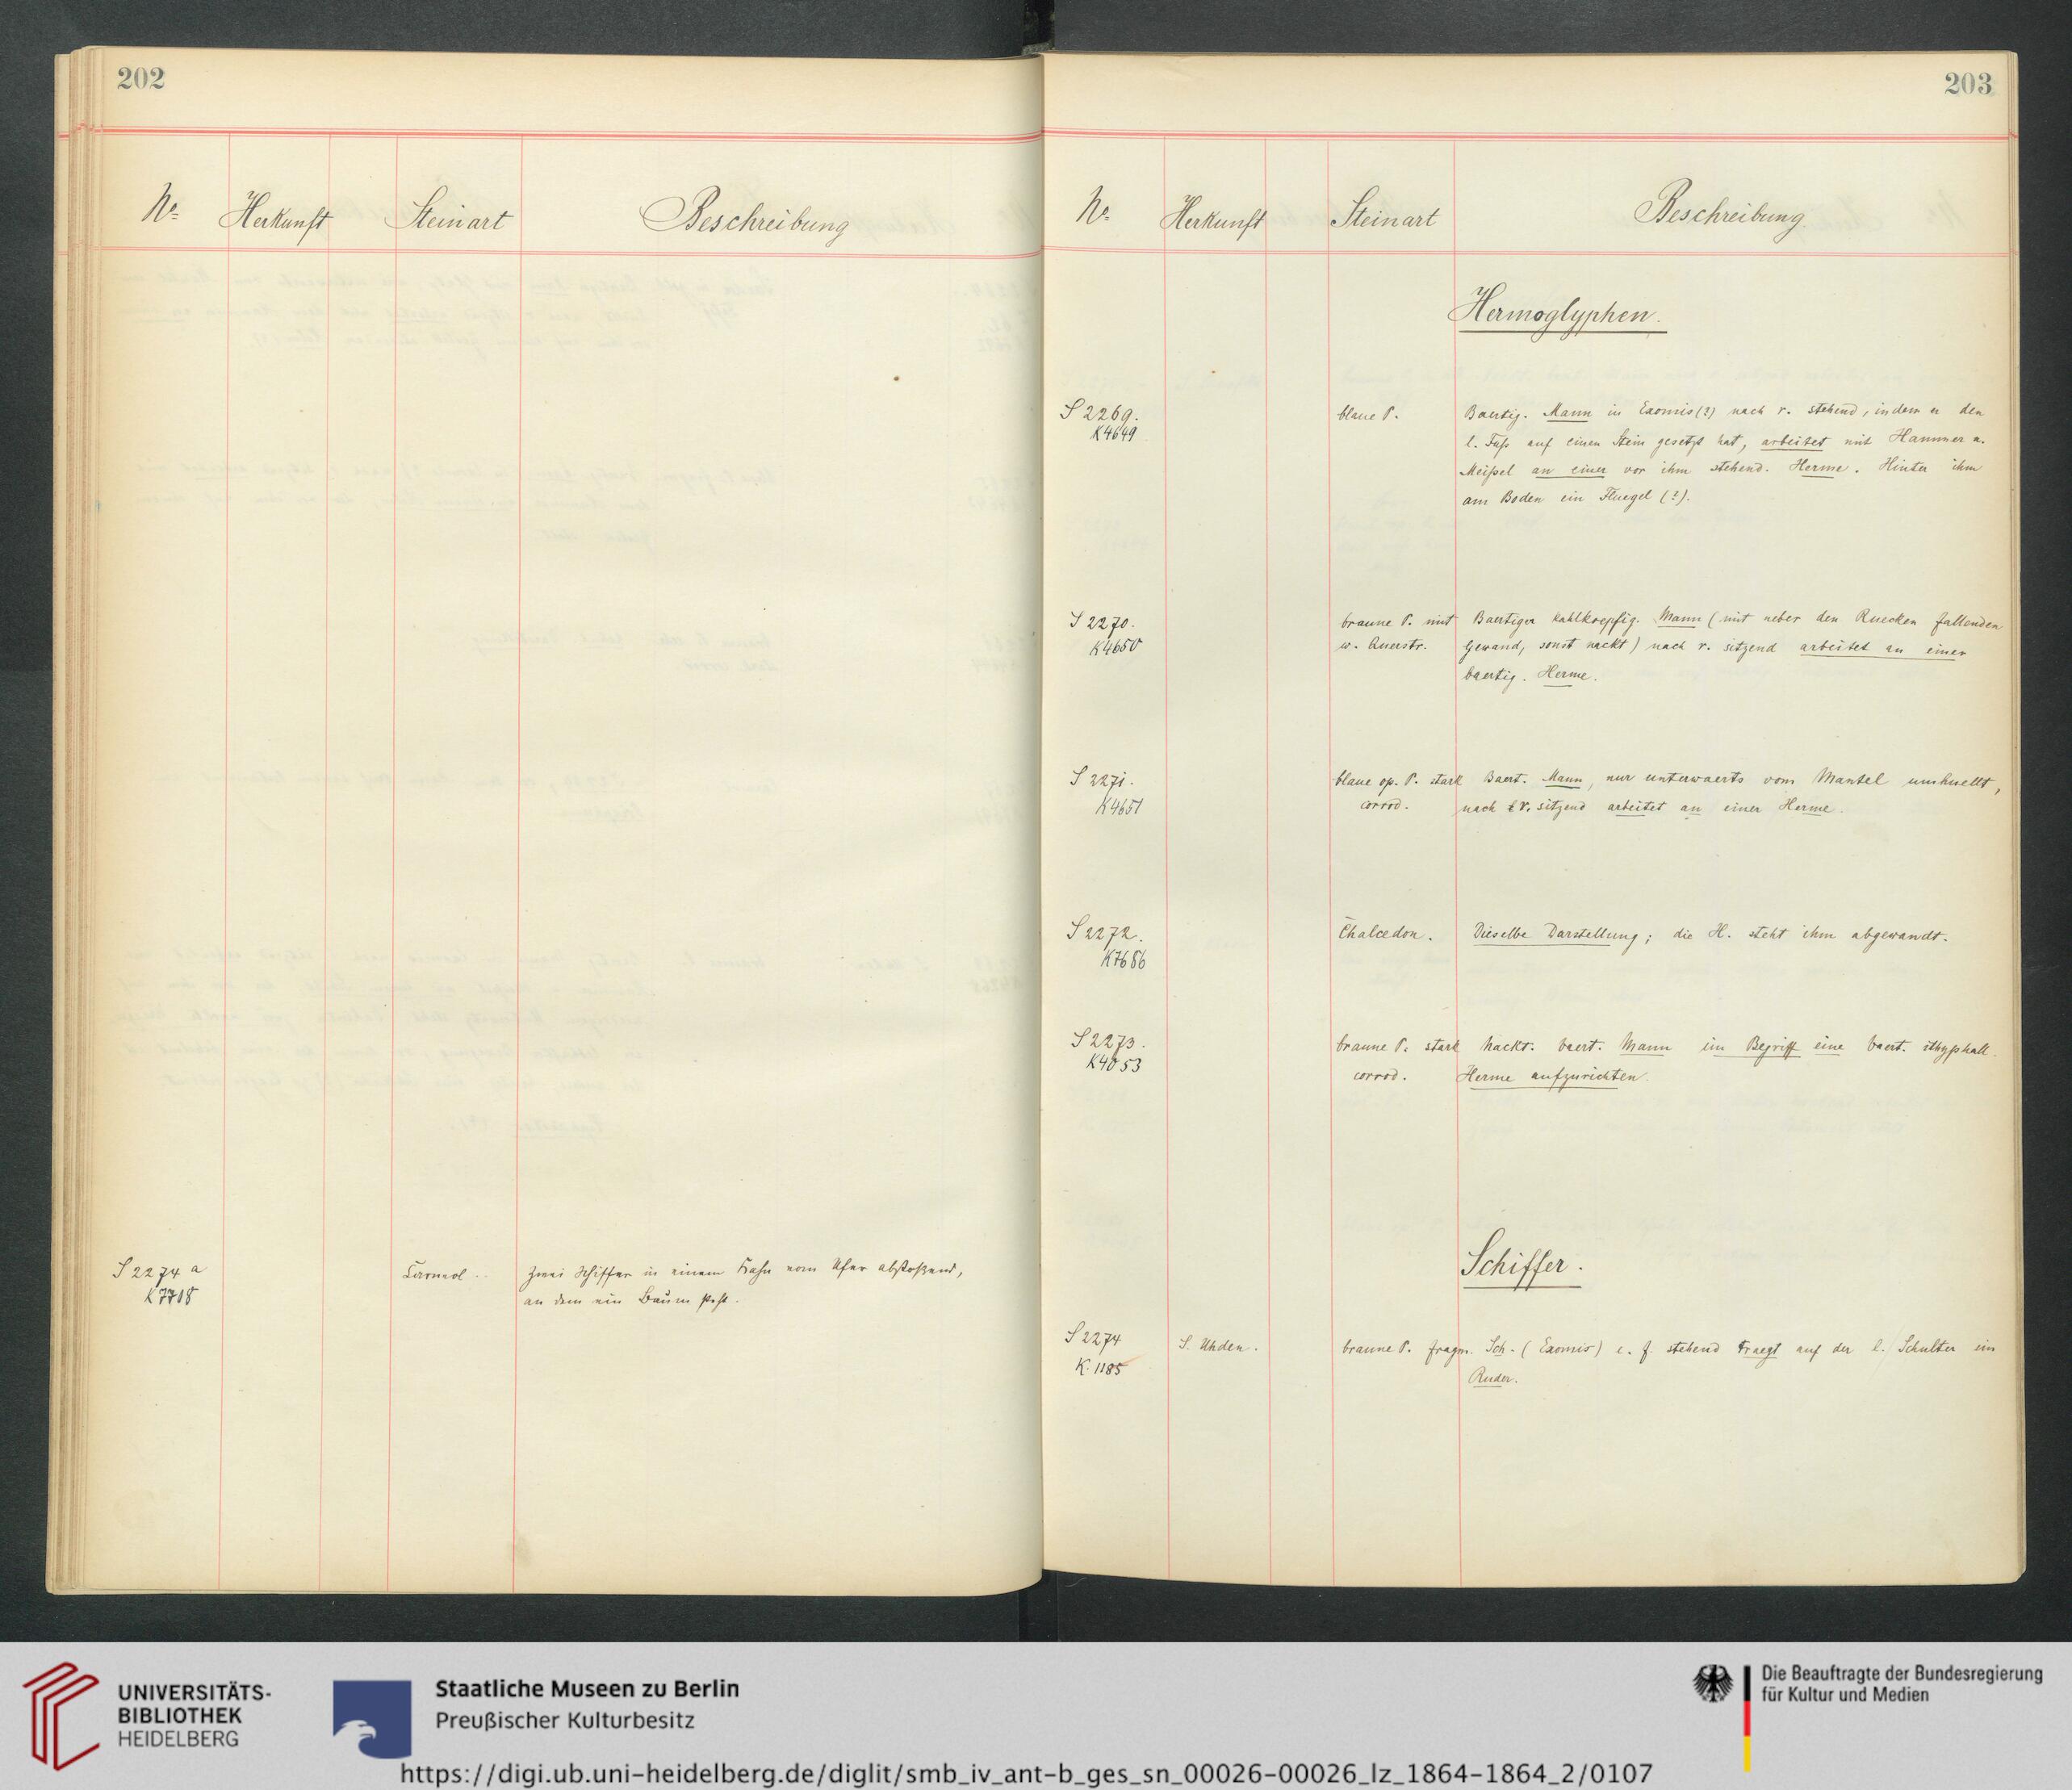 202
Nº Herkunft Steinart Beschreibung
S 2274 a Carneol. Zwei Schiffer in einem Kahn vom Ufer abstoßend,
K 7718 an dem ein Baum steht.
203
Nº Herkunft Steinart Beschreibung
Hermoglyphen.
S 2269. blaue P. Baertig. Mann in Exomis (?) nach r. stehend, indem er den
K 4649 l. Fuß auf einen Stein gesetzt hat, arbeitet mit Hammer u.
Meißel an einer vor ihm stehend. Herme. Hinter ihm
am Boden ein Fluegel (?).
S 2270. braune P. mit Baertiger kahlkoepfig. Mann (mit ueber den Ruecken fallenden
K 4650 w. Querstr. Gewand, sonst nackt) nach r. sitzend arbeitet an einer
baertig. Herme.
S 2271. blaue op. P. stark Baert. Mann, nur unterwaerts vom Mantel umhuellt,
K 4651 corrod. nach r. sitzend arbeitet an einer Herme.
S 2272. Chalcedon. Dieselbe Darstellung; die H. steht ihm abgewandt.
K 7686
S 2273. braune P. stark Nackt. baert. Mann im Begriff eine baert. ithyphall.
corrod. Herme aufzurichten.
Schiffer.
S 2274 S. Uhden. braune P. fragm. Sch. (Exomis) e. f. stehend traegt auf der l. Schulter ein
K. 1185 Ruder.
UNIVERSITÄTS-
BIBLIOTHEK
HEIDELBERG
Staatliche Museen zu Berlin
Preußischer Kulturbesitz
Die Beauftragte der Bundesregierung
für Kultur und Medien
https://digi.ub.uni-heidelberg.de/diglit/smb_iv_ant-b_ges_sn_00026-00026_lz_1864-1864_2/0107